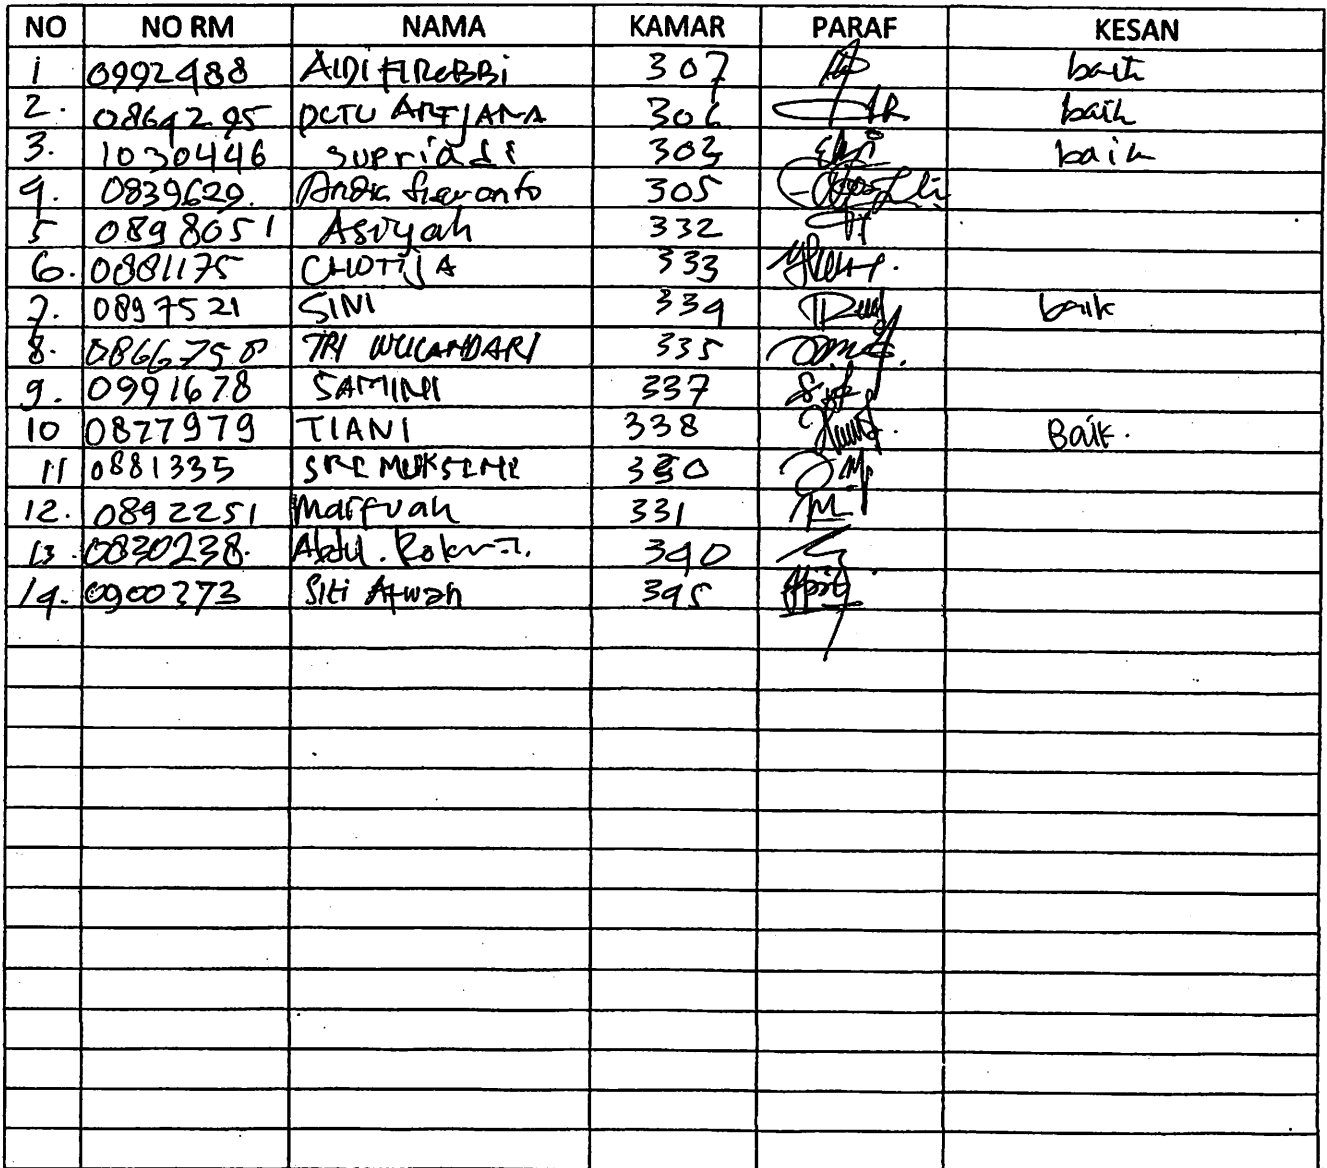 NO NO RM NAMA KAMAR PARAF KESAN
1 0992488 307 baik
2. 0864295 306 baik
3. 1030446 supriadi 303 baik
4. 0839629. 305
5 0898051 Asiyah 332
6. 0881175 CHOTIJA 333
7. 0897521 SINI 334 baik
8. 0866758 TRI WULANDARI 335
9. 0991678 SAMINI 337
10 0877979 TIANI 338 Baik.
11 0881335 SRI MUKSINI
12. 0892251 Marfuah 331
13. 0830238. Abdul. 340
14. 0900273 Siti 345